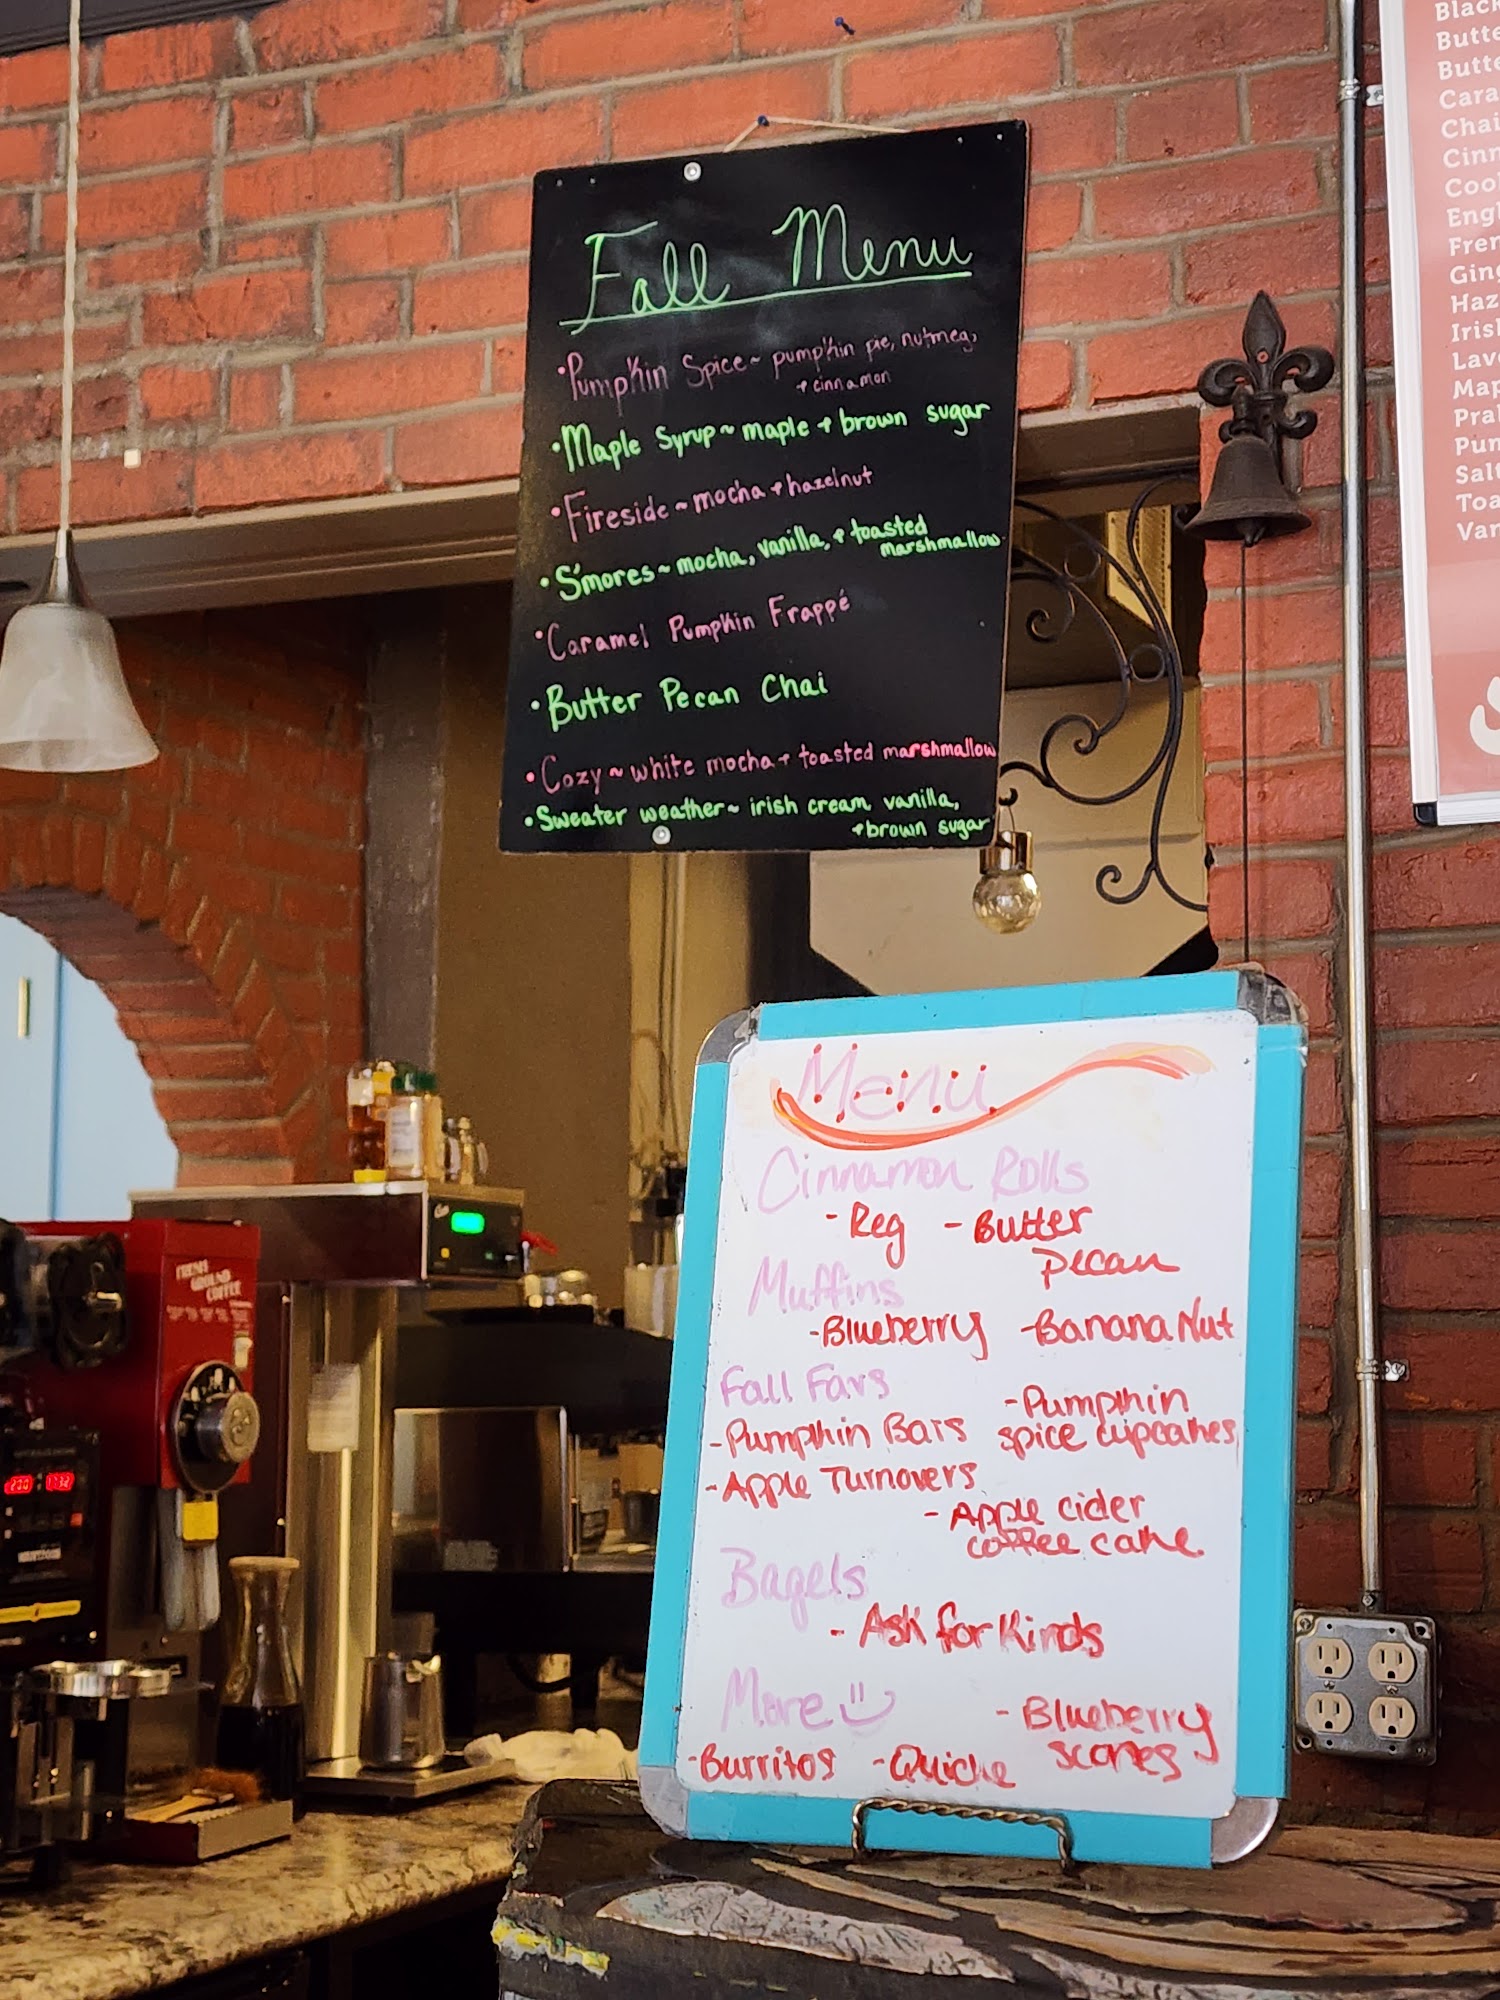 Fall Menu
•Pumpkin Spice~ pumpkin pie, nutmeg,
+ cinnamon
•Maple Syrup~ maple + brown sugar
•Fireside~mocha+hazelnut
•S'mores~mocha, vanilla, + toasted
marshmallow
•Caramel Pumpkin Frappé
•Butter Pecan Chai
•Cozy~white mocha+ toasted marshmallow
•Sweater weather~ irish cream vanilla,
+brown sugar
Menu
Cinnamon Rolls
-Reg -Butter
Pecan
Muffins
-Blueberry -Banana Nut
Fall Favs
-Pumpkin Bars
-Pumpkin
spice cupcakes
-Apple Turnovers
-Apple cider
coffee cake
Bagels
-Ask for Kinds
More
-Burritos -Quiche
-Blueberry
scones
Black
Butte
Butte
Cara
Chai
Cinn
Cool
Engl
Fren
Ging
Haz
Irish
Lave
Map
Pral
Pum
Salt
Toa
Van
FRESH
GROUND
COFFEE